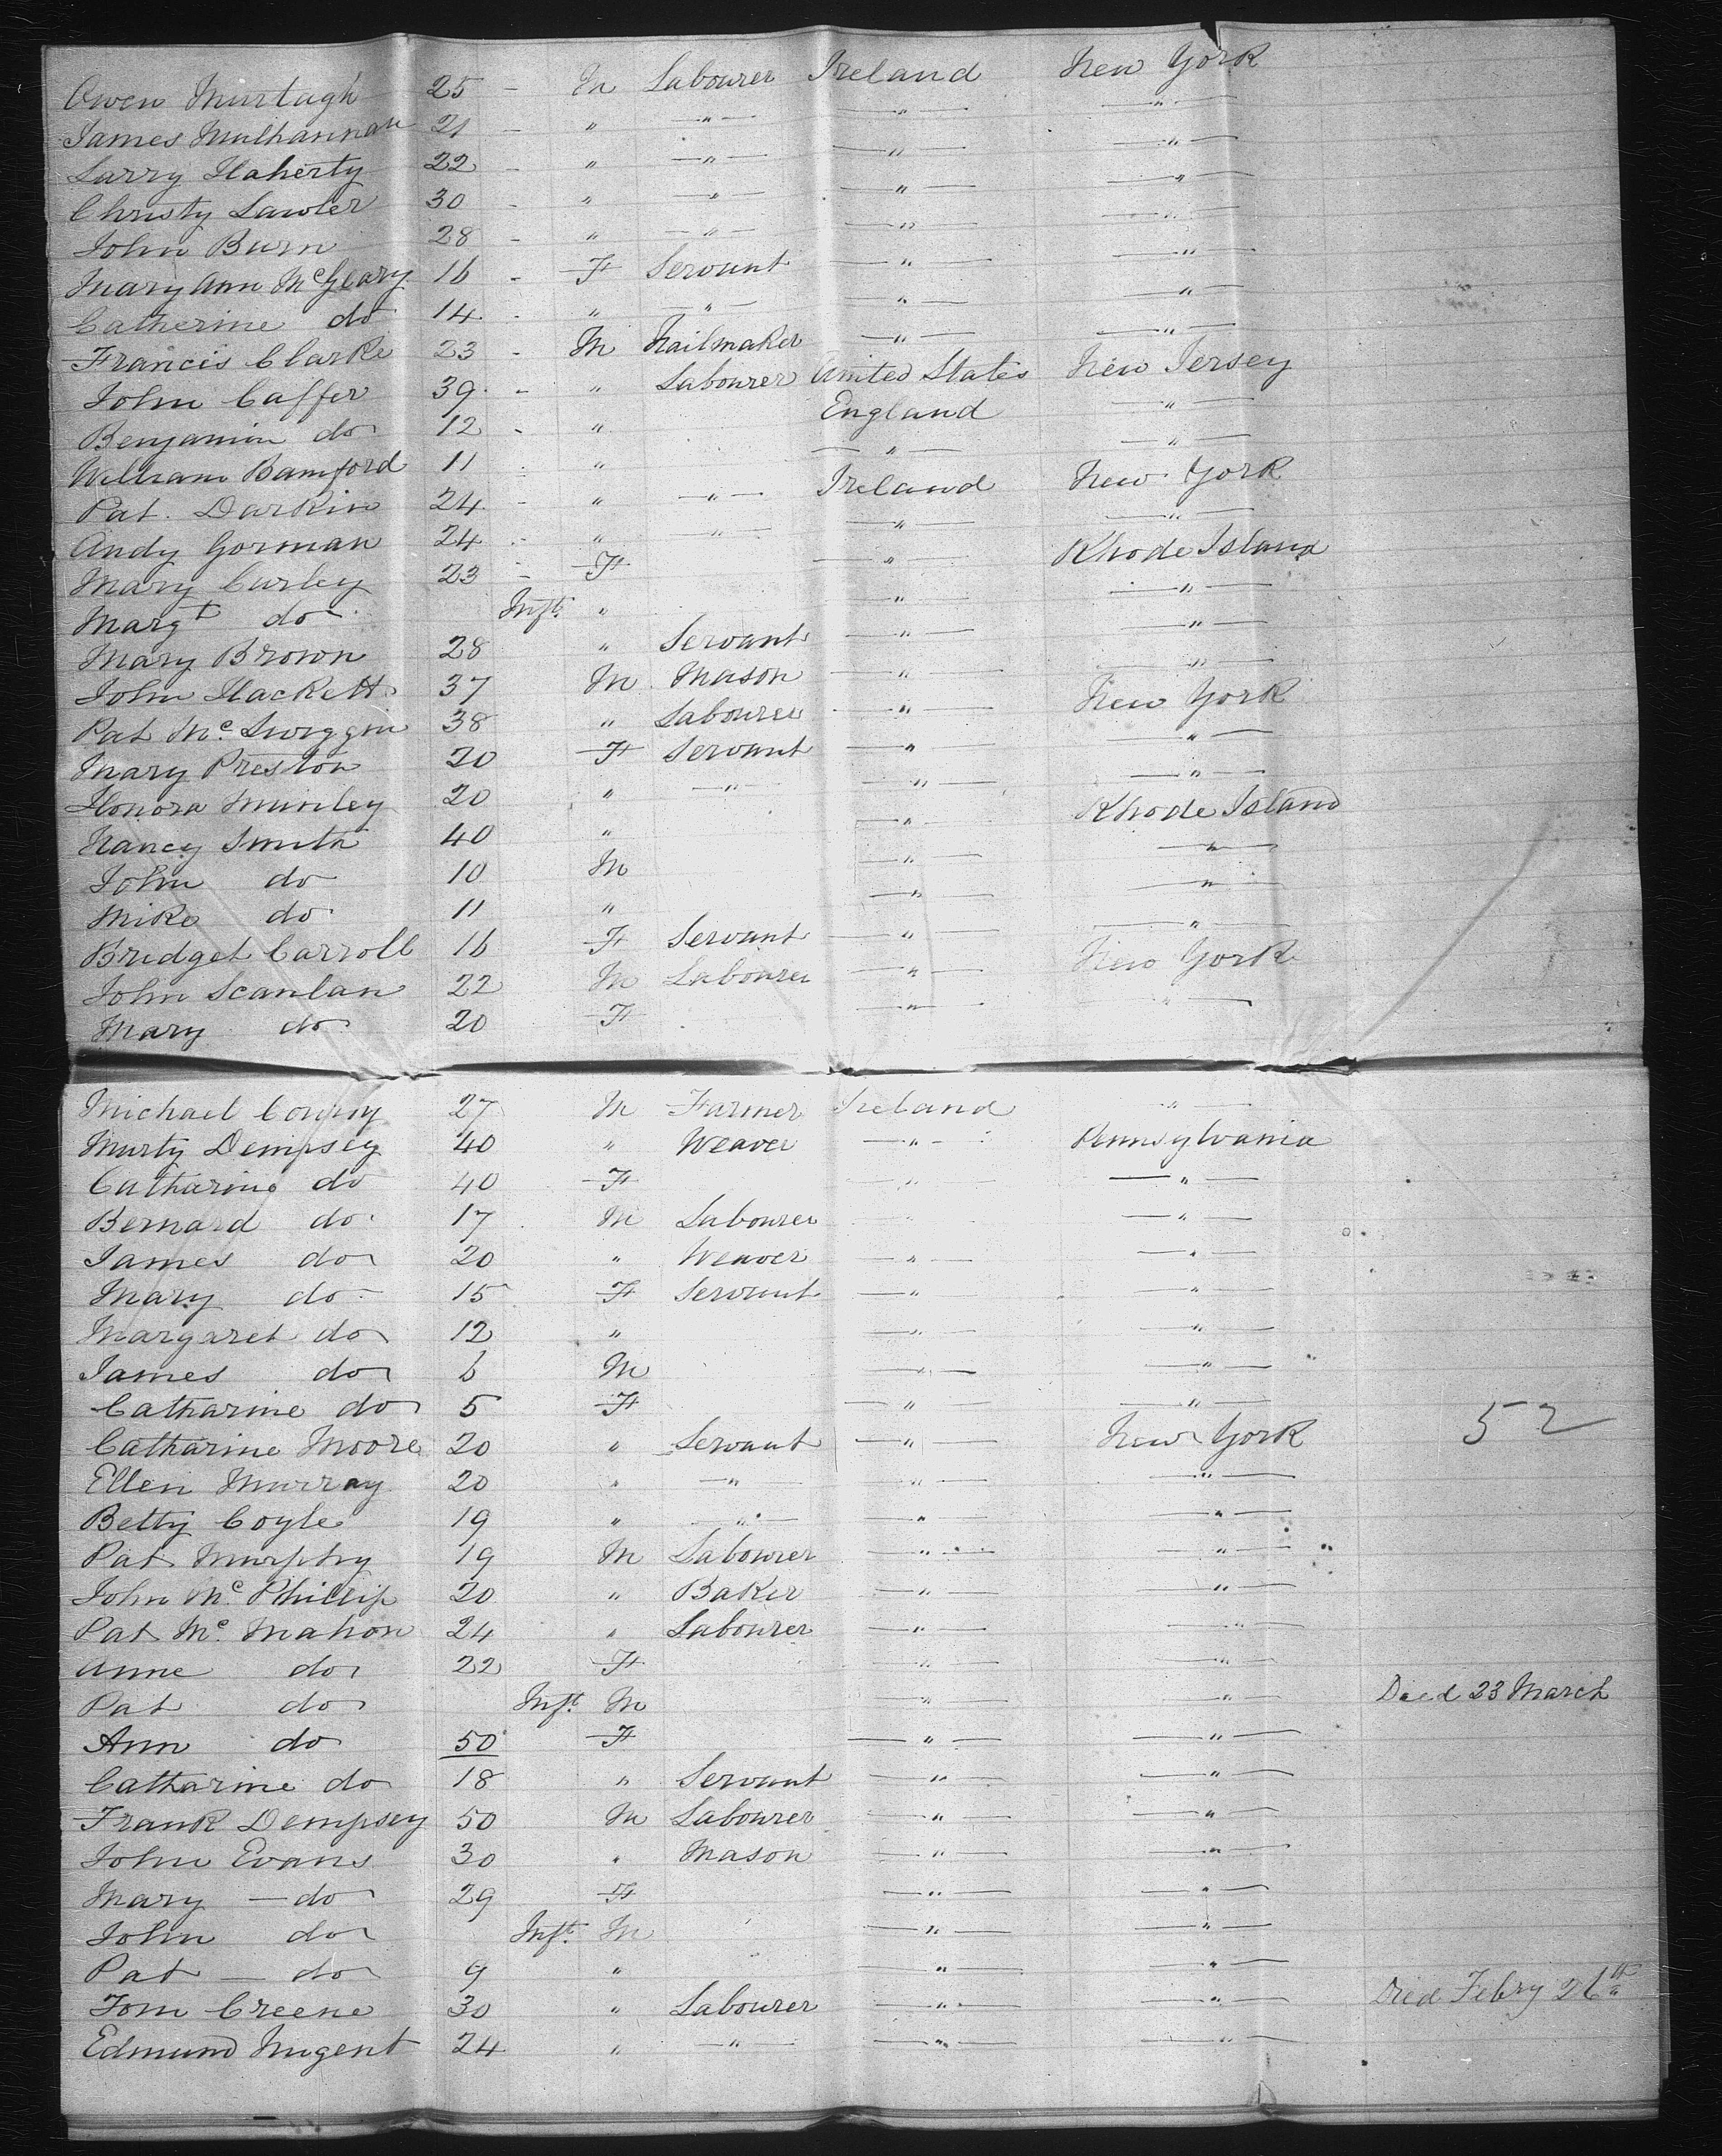 Owen Murtagh 25 - M Labourer Ireland New York
James Mulhannan 21 - " —"— —"— —"—
Larry Flaherty 22 - " —"— —"— —"—
Christy Lawler 30 - " " —"— —"—
John Burn 28 - " —"— —"— —"—
Mary Ann McGeary 16 - F Servant —"— —"—
Catherine do 14 - " —"— —"— —"—
Francis Clarke 23 - M Nailmaker —"— —"—
John Caffer 39 - " Labourer United States New Jersey
Benjamin do 12 - " England —"—
William Bamford 11 - " —"— —"—
Pat. Darkin 24 - " —"— Ireland New York
Andy Gorman 24 - " —"— —"— —"—
Mary Curley 23 - F —"— Rhode Island
Margt do Inft. " —"— —"—
Mary Brown 28 " Servant —"— —"—
John Hackett 37 M Mason —"— —"—
Pat Mc. Swiggin 38 " Labourer —"— New York
Mary Preston 20 F Servant —"— —"—
Honora Munley 20 " —"— —"— —"—
Nancy Smith 40 " —"— Rhode Island
John do 10 M —"— —"—
Mike do 11 " —"— —"—
Bridget Carroll 16 F Servant —"— —"—
John Scanlan 22 M Labourer —"— New York
Mary do 20 F —"— —"—
Michael 27 M Farmer Ireland —"—
Murty Dempsey 40 " Weaver —"— Pennsylvania
Catharine do 40 F —"— —"—
Bernard do 17 M Labourer —"—
James do 20 " Weaver —"— —"—
Mary do 15 F Servant —"— —"—
Margaret do 12 " —"— —"—
James do 6 M —"— —"—
Catharine do 5 F —"— —"—
Catharine Moore 20 " Servant —"— New York 52
Ellen Murray 20 " —"— —"— —"—
Betty Coyle 19 " —"— —"— —"—
Pat Murphy 19 M Labourer —"— —"—
John Mc. Phillip 20 " Baker —"— —"—
Pat Mc. Mahon 24 " Labourer —"— —"—
Anne do 22 F —"— —"—
Pat do Inft. M —"— —"— Died 23 March
Ann do 50 F —"— —"—
Catharine do 18 " Servant —"— —"—
Frank Dempsey 50 M Labourer —"— —"—
John Evans 30 " Mason —"— —"—
Mary — do 29 F —"— —"—
John do Inft. M —"— —"—
Pat — do 9 " —"— —"—
Tom Creene 30 " Labourer —"— —"— Died Febry 26th
Edmund Nugent 24 " —"— —"— —"—